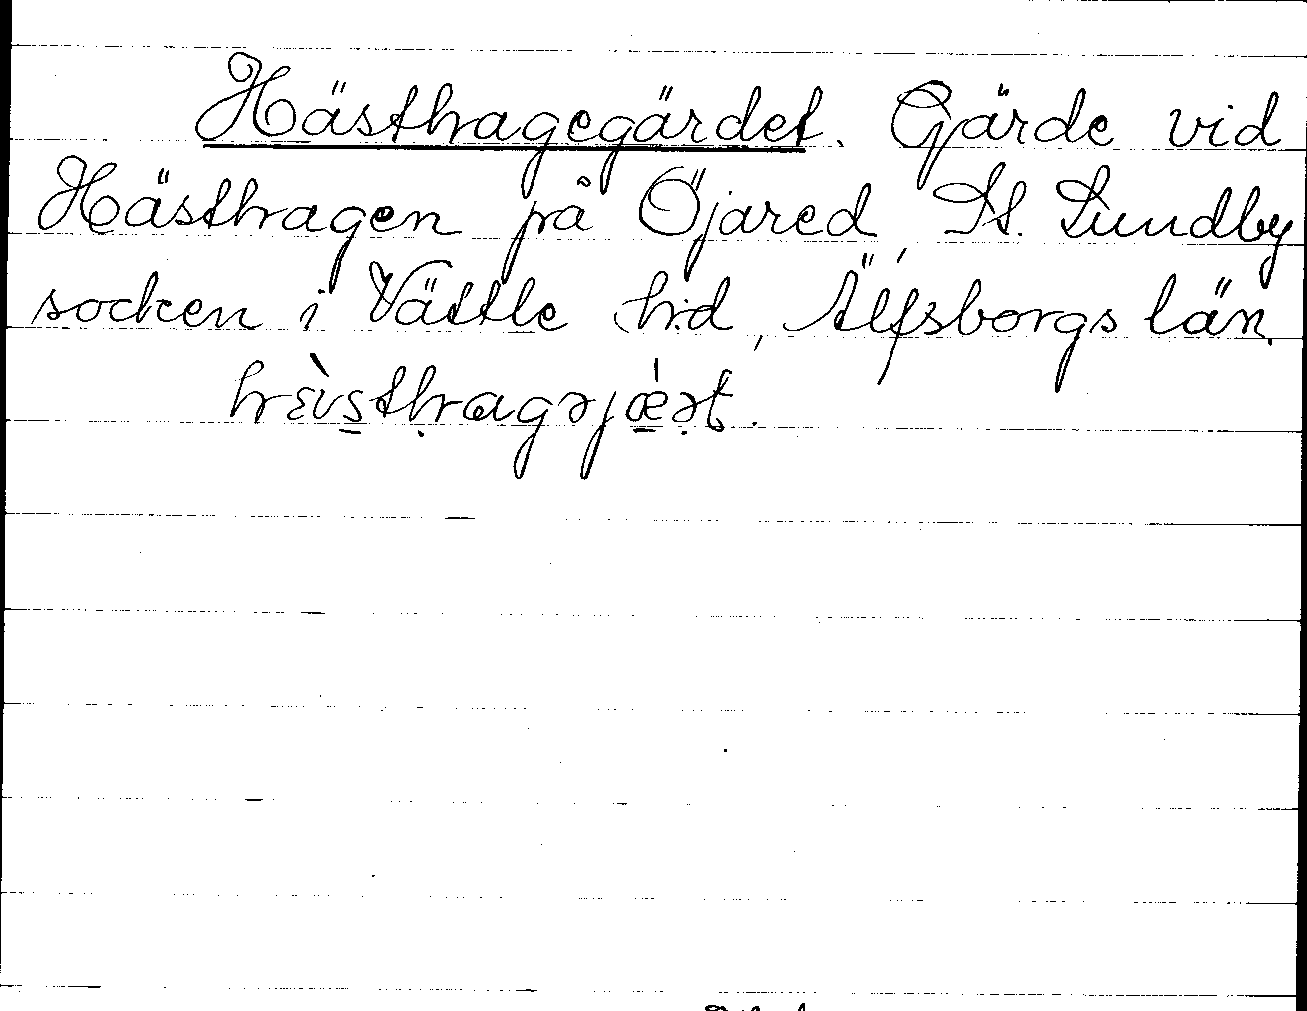 Hästhagegärdet. Gärde vid
Hästhagen på Öjared, St. Lundby
socken i Vättle hd, Älfsborgs län.